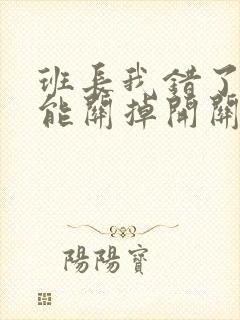 班長我錯了
能關掉開關
陽陽寶